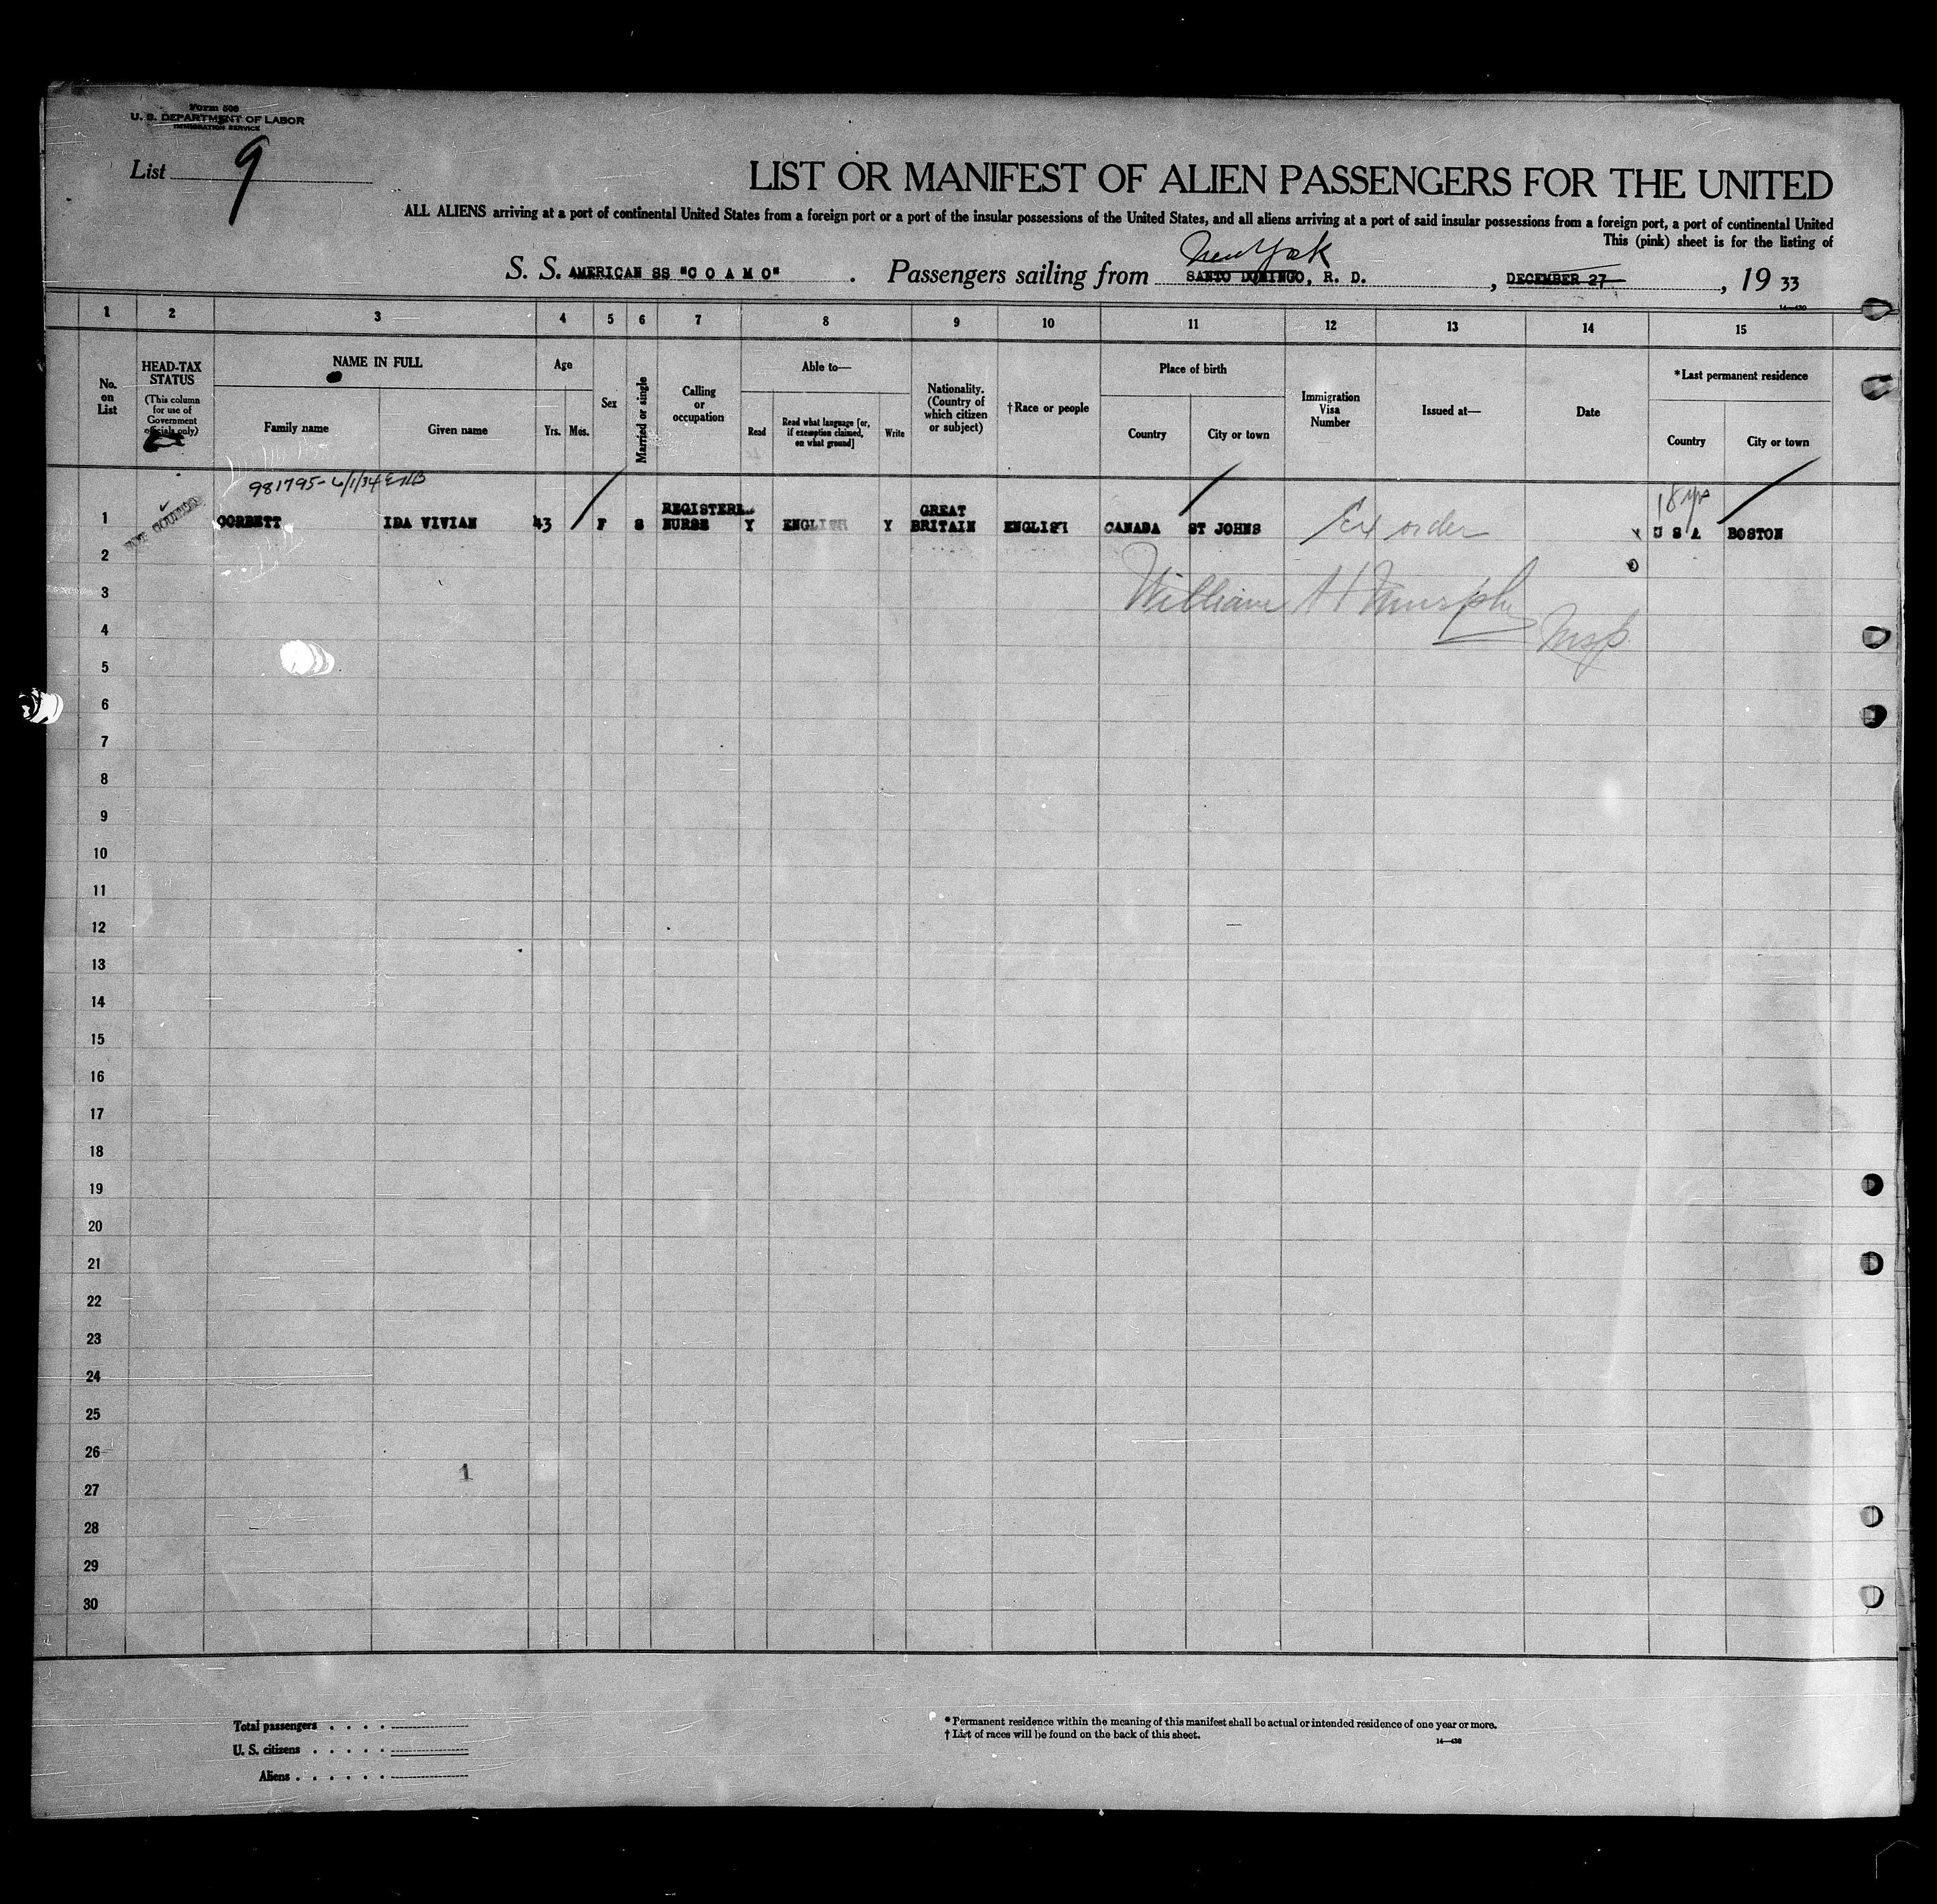 Form 500
U. S. DEPARTMENT OF LABOR
IMMIGRATION SERVICE
List 9
LIST OR MANIFEST OF ALIEN PASSENGERS FOR THE UNITED
ALL ALIENS arriving at a port of continental United States from a foreign port or a port of the insular possessions of the United States, and all aliens arriving at a port of said insular possessions from a foreign port, a port of continental United
This (pink) sheet is for the listing of
New York
S. S. AMERICAN SS "C O A M O" . Passengers sailing from SANTO DOMINGO, R. D. , DECEMBER 27 , 19 33
14—430
1 2 3 4 5 6 7 8 9 10 11 12 13 14 15
No. on List
HEAD-TAX STATUS
(This column for use of Government officials only)
NAME IN FULL
Family name Given name
Age
Yrs. Mos.
Sex
Married or single
Calling or occupation
Able to—
Read
Read what language [or, if exemption claimed, on what ground]
Write
Nationality. (Country of which citizen or subject)
† Race or people
Place of birth
Country City or town
Immigration Visa Number
Issued at—
Date
* Last permanent residence
Country City or town
981795-6/1/34
18 yrs
1 CORBETT IDA VIVIAN 43 F S REGISTERED NURSE Y ENGLISH Y GREAT BRITAIN ENGLISH CANADA ST JOHNS Ex order U S A BOSTON
2
3 William H Murphy
4 Insp.
5
6
7
8
9
10
11
12
13
14
15
16
17
18
19
20
21
22
23
24
25
26
1
27
28
29
30
Total passengers . . . .
U. S. citizens . . . . .
Aliens . . . . . .
* Permanent residence within the meaning of this manifest shall be actual or intended residence of one year or more.
† List of races will be found on the back of this sheet.
14—430